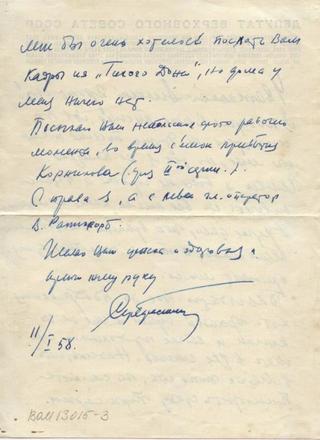 ДЕПУТАТ ВЕРХОВНОГО СОВЕТА СССР
Мне бы очень хотелось послать Вам
кадры из „Тихого Дона", но дома у
меня ничего нет.
Посылаю Вам
момента, во время съемок прибытия
Корнилова (для IIой серии).
Справа я, а слева гл. оператор
В. Раппопорт.
Желаю Вам успеха и здоровья и
крепко жму руку
11/I 58.
ВОМ 13015-3